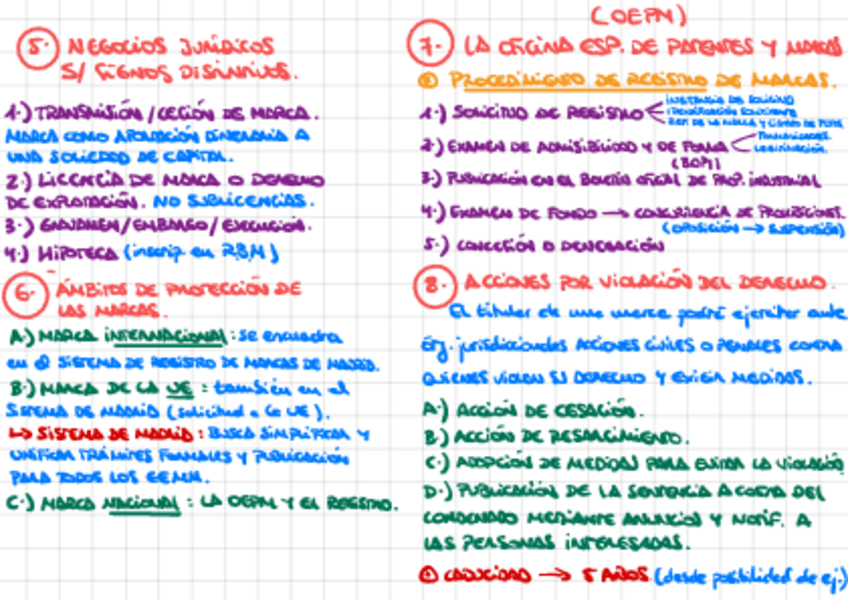 5. NEGOCIOS JURÍDICOS
S/ SIGNOS DISTINTIVOS.
1.) TRANSMISIÓN / CECIÓN DE MARCA.
MARCA COMO APORTACIÓN DINERARIA A
UNA SOCIEDAD DE CAPITAL.
2.) LICENCIA DE MARCA O DERECHO
DE EXPLOTACIÓN. NO SUBLICENCIAS.
3.) GRAVAMEN / EMBARGO / EJECUCIÓN.
4.) HIPOTECA (inscrip. en RBM)
6. ÁMBITOS DE PROTECCIÓN DE
LAS MARCAS.
A.) MARCA INTERNACIONAL: se encuadra
en el SISTEMA DE REGISTRO DE MARCAS DE MADRID.
B.) MARCA DE LA UE: también en el
SISTEMA DE MADRID (solicitud a la UE).
↳ SISTEMA DE MADRID: BUSCA SIMPLIFICAR Y
UNIFICAR TRÁMITES FORMALES Y PUBLICACIÓN
PARA TODOS LOS EEMM.
C.) MARCA NACIONAL: LA OEPM Y EL REGISTRO.
(OEPM)
7. LA OFICINA ESP. DE PATENTES Y MARCAS
PROCEDIMIENTO DE REGISTRO DE MARCAS.
1.) SOLICITUD DE REGISTRO
INSTANCIA DE SOLICITUD
IDENTIFICACIÓN SOLICITANTE
REP. DE LA MARCA Y
2.) EXAMEN DE ADMISIBILIDAD Y DE FORMA
LEGITIMACIÓN.
(BOPI)
3.) PUBLICACIÓN EN EL BOLETÍN OFICIAL DE PROP. INDUSTRIAL
4.) EXAMEN DE FONDO → CONCURRENCIA DE PROHIBICIONES.
(OPOSICIÓN → SUSPENSIÓN)
5.) CONCESIÓN O DENEGACIÓN
8. ACCIONES POR VIOLACIÓN DEL DERECHO.
El titular de una marca podrá ejercitar ante
órg. jurisdiccionales ACCIONES CIVILES O PENALES CONTRA
QUIENES VIOLEN SU DERECHO Y EXIGIR MEDIDAS.
A.) ACCIÓN DE CESACIÓN.
B.) ACCIÓN DE RESARCIMIENTO.
C.) ADOPCIÓN DE MEDIDAS PARA EVITAR LA VIOLACIÓN
D.) PUBLICACIÓN DE LA SENTENCIA A COSTA DEL
CONDENADO MEDIANTE ANUNCIOS Y NOTIF. A
LAS PERSONAS INTERESADAS.
CADUCIDAD → 5 AÑOS (desde posibilidad de ej.)